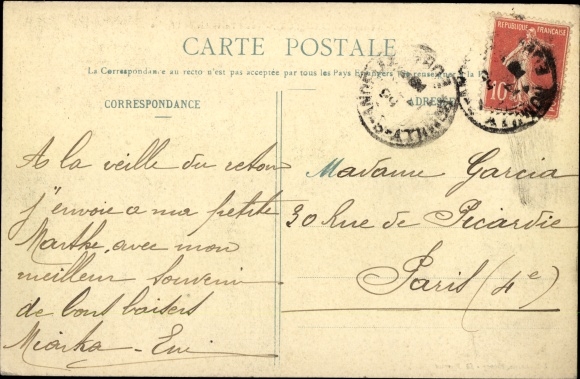 CARTE POSTALE
La Correspondance au recto n'est pas acceptée par tous les Pays Etrangers (Se renseigner à la
CORRESPONDANCE
ADRESSE
REPUBLIQUE FRANÇAISE
10
A la veille du retour
j'envoie a ma petite
Marthe, avec mon
meilleur souvenir
de bons baisers
Miarka
Madame Garcia
30 Rue de Picardie
Paris (4e)